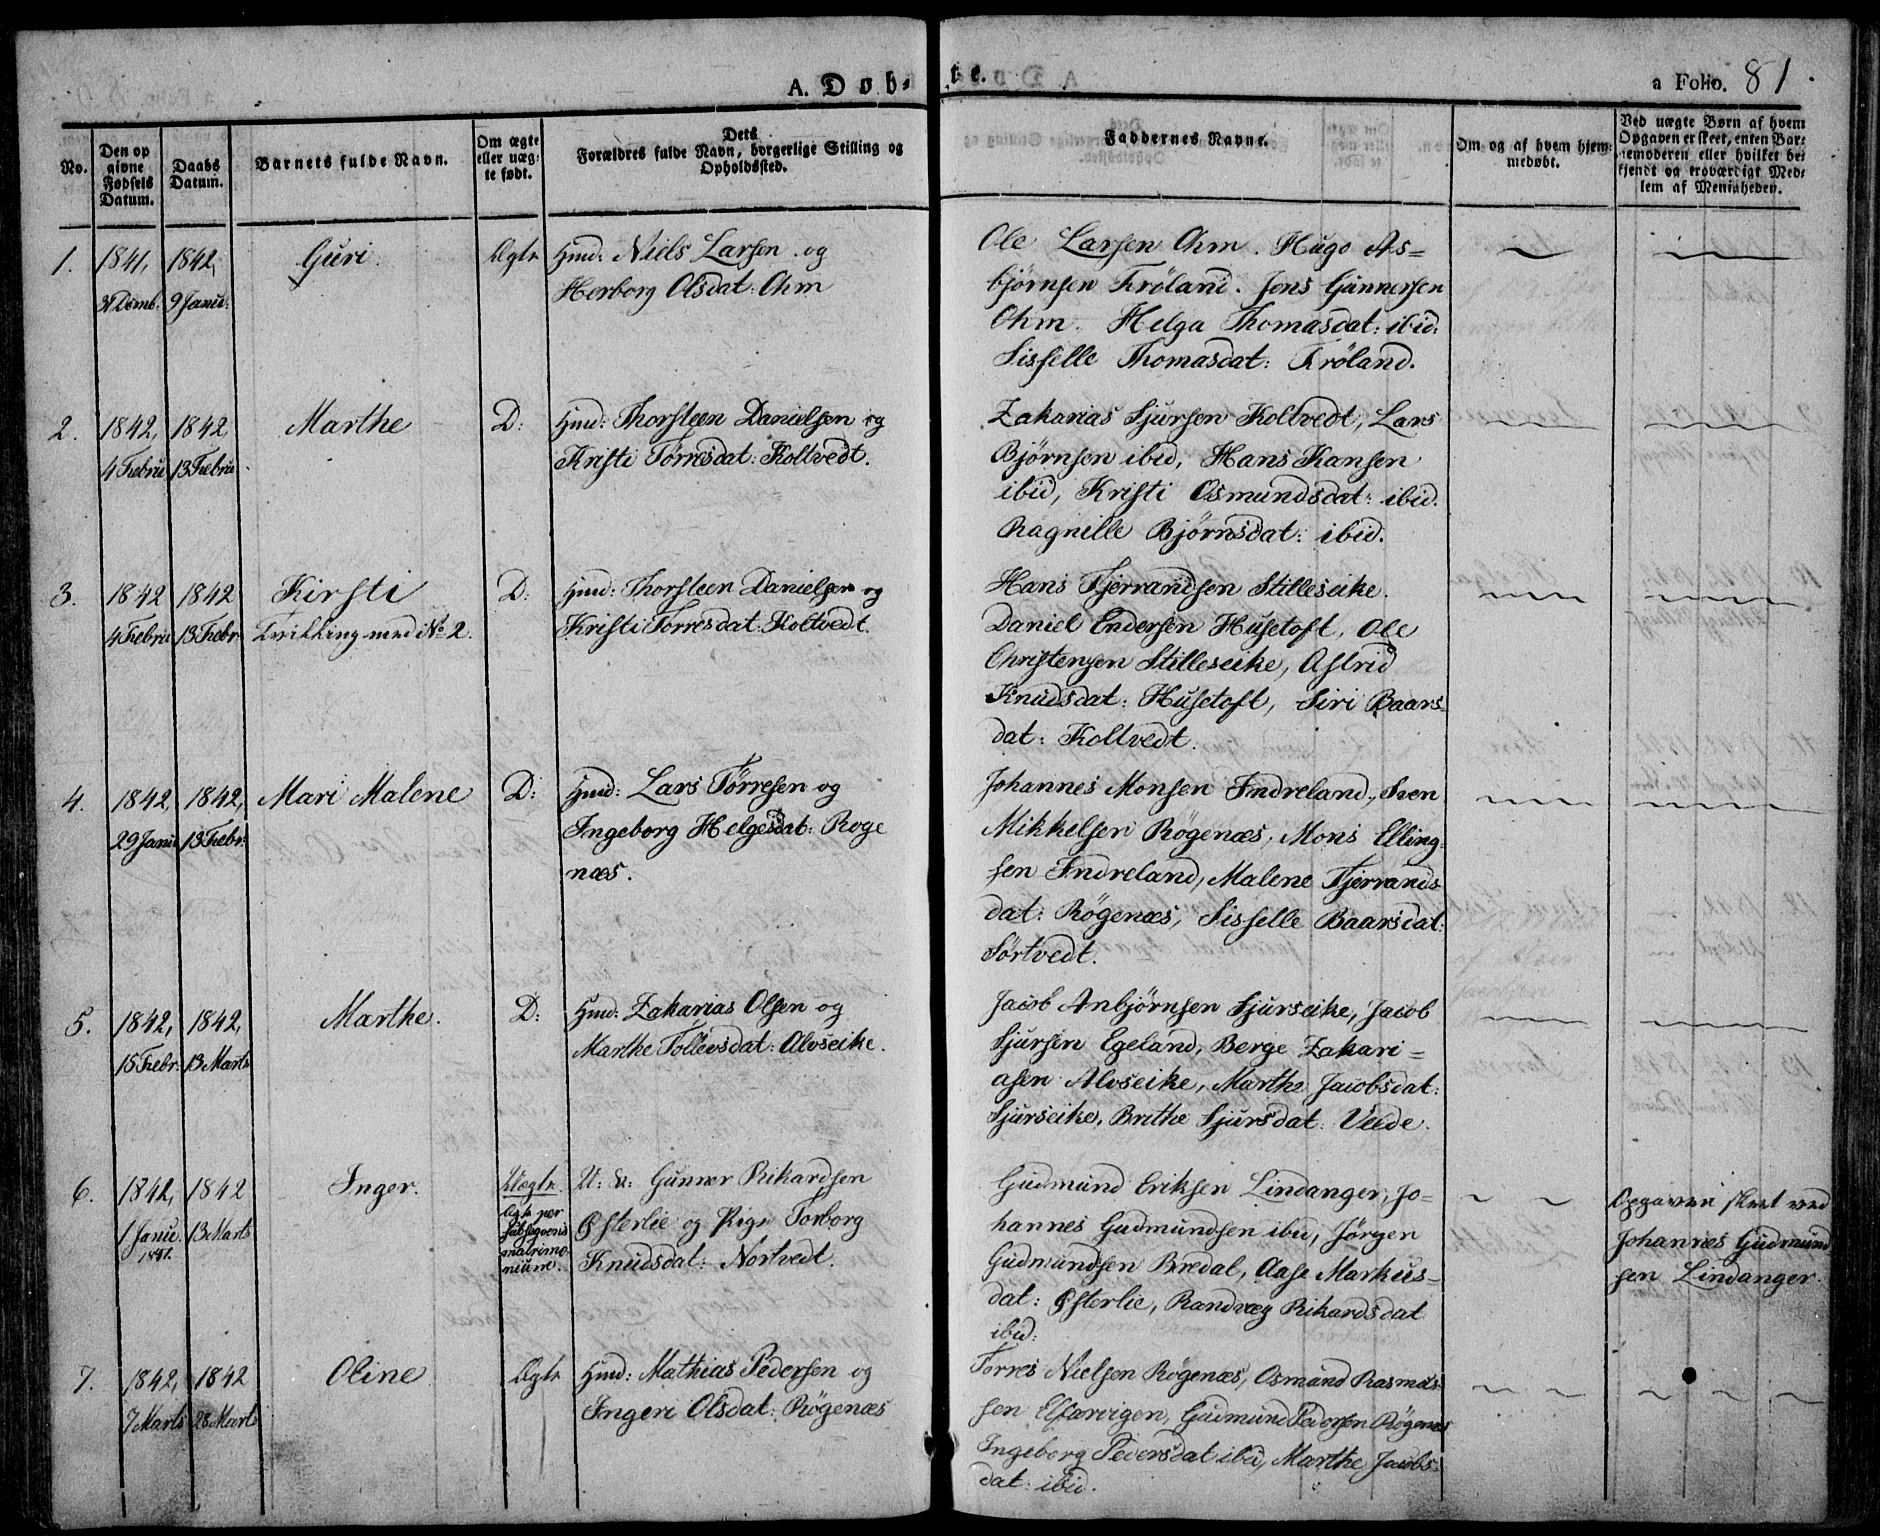 A. Døb-
te.
a Folio. 81.
No.
Den op
givne
Fødsels
Datum.
Daabs
Datum.
Barnets fulde Navn.
Om ægte
eller uæg-
te født.
Dets
Forældres fulde Navn, borgerlige Stilling og
Opholdssted.
Faddernes Navne.
Om og af hvem hjem-
medøbt.
Ved uægte Børn af hvem
Opgaven er skeet, enten Bar-
nemoderen eller hvilket be-
kjendt og troværdigt Med-
lem af Menigheden.
1. 1841, 1842, Guri. Ægte Hmd: Niels Larsen og
31 Dcmb. 9 Janu: Herborg Olsdat: Ohm
Ole Larsen Ohm. Hugo As=
bjørnsen Frøland. Jens Gunnersen
Ohm. Helga Thomasdat: ibid:
Sisselle Thomasdat: Frøland.
2. 1842, 1842 Marthe D: Hmd: Thorsteen Danielsen og
4 Febru 13 Febru Kristi Tørresdat: Koltvedt.
Zakarias Sjursen Koltvedt, Lars
Bjørnsen ibid, Hans Hansen
ibid, Kristi Osmundsdat: ibid.
Ragnille Bjørnsdat: ibid.
3. 1842 1842 Kirsti D: Hmd: Thorsteen Danielsen og
4 Febru 13 Febr Tvilling med No 2. Kristi Tørresdat: Koltvedt.
Hans Fjerrandsen Stilleseike.
Daniel Endersen Husetoft, Ole
Christensen Stilleseike, Astrid
Knudsdat: Husetoft, Siri Baars
dat: Koltvedt.
4. 1842, 1842, Mari Malene D: Hmd: Lars Tørresen og
29 Janu 13 Febr: Ingeborg Helgesdat: Roge
næs.
Johannes Monsen Indreland, Sven
Mikkelsen Røgenæs, Mons Elling
sen Indreland, Malene Fjerrands
dat: Røgenæs, Sisselle Baarsdat:
Sørtvedt.
5. 1842, 1842, Marthe. D: Hmd: Zakarias Olsen og
15 Febr: 13 Marts Marthe Tollevsdat: Alvseike.
Jacob Anbjørnsen Sjurseike, Jacob
Sjursen Egeland, Berge Zakari=
asen Alvseike, Marthe Jacobsdat:
Sjurseike, Brithe Sjursdat: Veede.
6. 1842, 1842 Inger. Uægte. U: K: Gunner Rikardsen
1 Janu. 13 Marts Ægte per Østerlie og Pige Torborg
1841. subseqvens Knudsdat: Nortvedt.
matrimo-
nium.
Gudmund Eriksen Lindanger, Jo=
hannes Gudmundsen ibid, Jørgen
Gudmundsen Bredal, Aase Markus=
dat: Østerlie, Randvæg Rikardsdat
ibid:
Opgaven skeet ved
Johannes Gudmund
sen Lindanger.
7. 1842, 1842 Oline Ægte Hmd: Mathias Pedersen og
7 Marts 28 Marts Ingeri Olsdat: Røgenæs
Torres Nielsen Røgenæs, Osmund Rasmus-
sen Elfarvigen, Gudmund Pedersen Røgenæs
Ingeborg Pedersdat ibid, Marthe Jacobs-
dat: ibid.